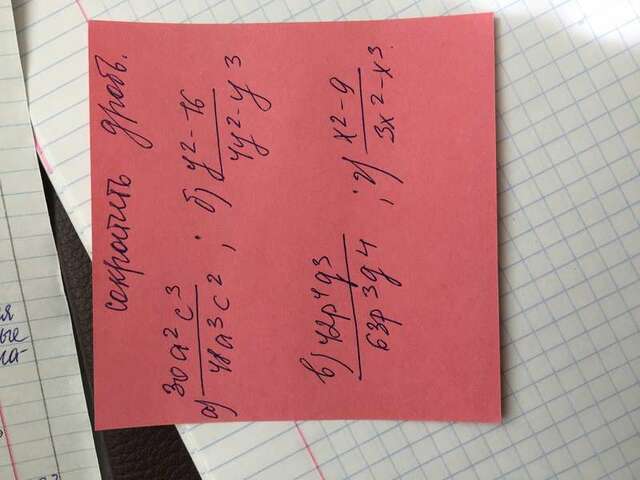 сократить дробь.
а) 30a²c³ / 48a³c² ; б) y²-16 / 4y²-y³
в) 42p⁴q³ / 63p³q⁴ ; г) x²-9 / 3x²-x³
ые
на-